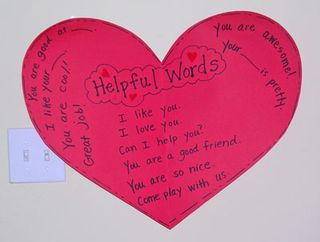 You are good at ____.
I like your ____.
You are cool!
Great job!
Helpful Words
I like you.
I love you.
Can I help you?
You are a good friend.
You are so nice.
Come play with us.
You are awesome!
Your ____ is pretty.